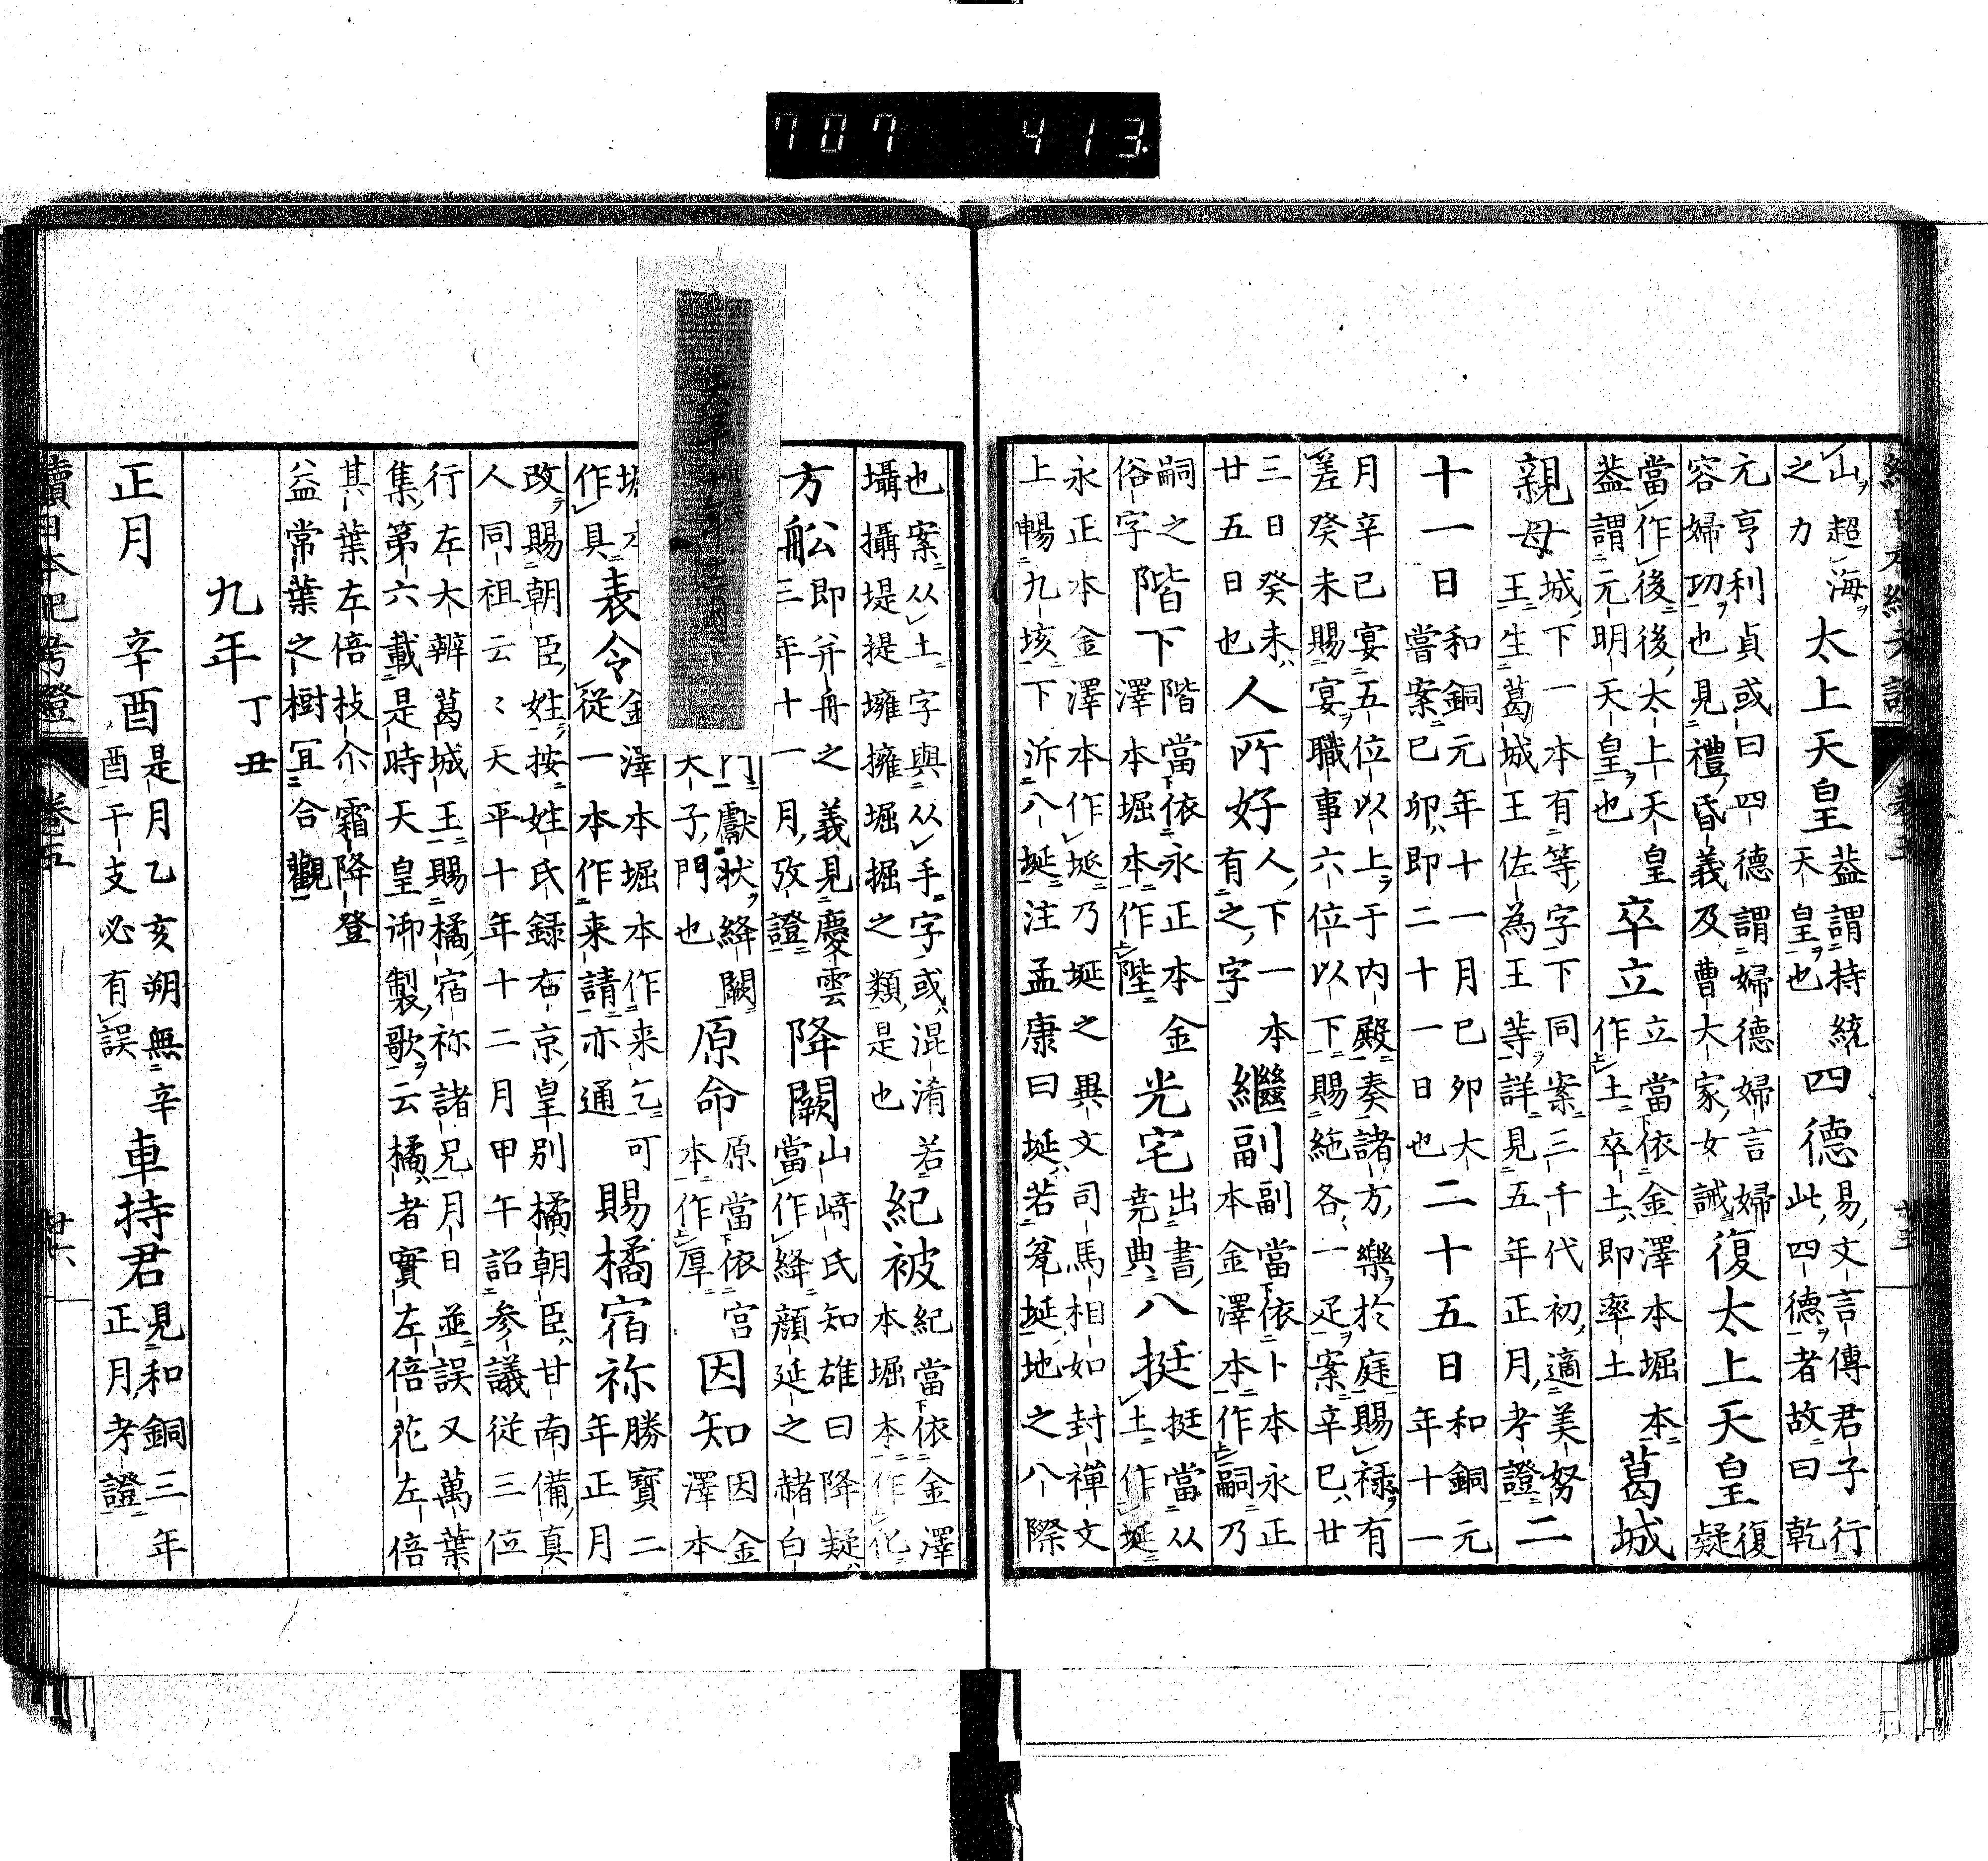 山超海之力太上天皇蓋謂持統天皇也四德易文言傳君子行此四德者故曰乾
元亨利貞或曰四德謂婦德婦言婦容婦功也見禮昏義及曹大家女誡復太上天皇復疑
當作後後太上天皇蓋謂元明天皇也卒立立當依金澤本堀本作土卒土即率土葛城
親母城下一本有等字下同案三千代初適美努王生葛城王佐為王等詳見五年正月考證二
十一日和銅元年十一月己卯大嘗案己卯即二十一日也二十五日和銅元年十一
月辛巳宴五位以上于内殿奏諸方樂於庭賜禄有差癸未賜宴職事六位以下賜絁各一疋案辛巳廿
三日癸未廿五日也人所好人下一本有之字繼副副當依卜本永正本金澤本作嗣乃
嗣之俗字階下階當依永正本金澤本堀本作陛光宅出書堯典八挻挻當从土作埏
永正本金澤本作埏乃埏之異文司馬相如封禪文上暢九垓下泝八埏注孟康曰埏若瓮埏地之八際
也案从土字與从手字或混淆若攝堤提擁堀掘之類是也紀被紀當依金澤本堀本作化
方舩即并舟之義見慶雲三年十一月攷證降闕山﨑氏知雄曰降疑當作絳顔延之赭白
門獻狀絳闕天子門也原命原當依宮本作厚因知因金澤本
作具表令金澤本堀本作来乞可從一本作来請亦通賜橘宿祢勝寶二年正月
改賜朝臣姓按姓氏録右京皇別橘朝臣甘南備真人同祖云〻天平十年十二月甲午詔参議從三位
行左大辨葛城王賜橘宿祢諸兄月日並誤又萬葉集第六載是時天皇御製歌云橘者實左倍花左倍
其葉左倍枝尒霜降登益常葉之樹冝合觀
九年丁丑
正月辛酉是月乙亥朔無辛酉干支必有誤車持君見和銅三年正月考證
續日本紀考證 卷五 廿六
天平